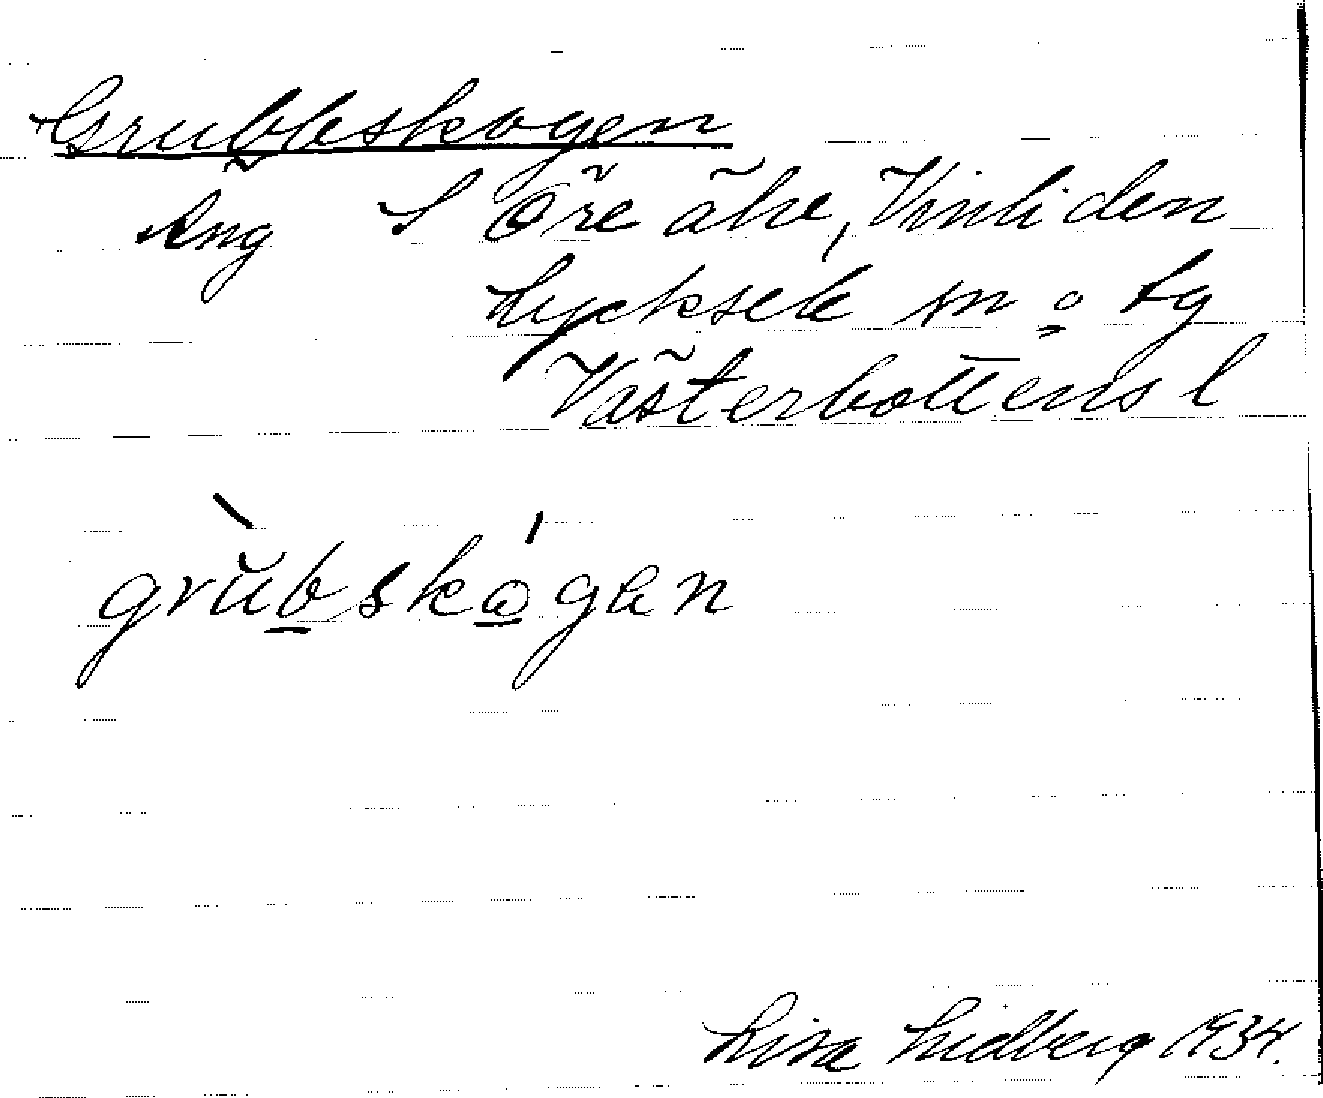 Grubbskogen
Äng S Öre älv, Vinliden
Lycksele sn o tg
Västerbottens l
grubskogen
Lisa Lidberg 1934.